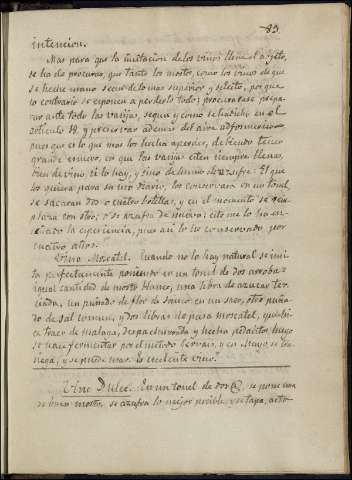 83
intencion.
Mas para que la imitacion de los vinos llene el objeto,
se ha de procurar, que tanto los mostos, como los vinos de que
se heche mano sean de lo mas superior y selecto, por que
lo contrario se espone a perderlo todo; procurarase prepa-
rar ante todo las vasijas, segun y como se ha dicho en el
articulo 18, y precaver ademas del aire
pues que es lo que mas los hecha a perder, debiendo tener
grande esmero, en que las vasijas esten siempre llenas,
bien de vino, si lo hay, y sino de humo de azufre. El que
los quiera para su uso diario, los conservara en un tonel,
se sacaran dos o cuatro botellas, y en el momento se rem-
plaza con otro, o se azufra de nuevo; esto me lo ha en-
señado la esperiencia, pues asi lo he conservado por
cuatro años.
Vino Moscatel. Cuando no lo hay natural se imi-
ta perfectamente poniendo en un tonel de dos arrobas
igual cantidad de mosto blanco, una libra de azucar ter-
ciada, un puñado de flor de sauco en un saco, otro puña-
do de sal comun, y dos libras de pasa moscatel, que
traer de Malaga, despachurrada y hecha pedacitos; luego
se hace fermentar por el metodo Gervais, y en Mayo se tra-
siega, y se puede usar. Es excelente vino.
Vino Dulce. En un tonel de dos @, se pone una
de buen mosto, se azufra lo mejor posible, y se tapa, esto